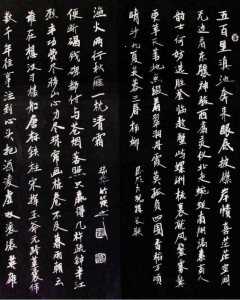 五百里滇池奔来眼底披襟岸帻喜茫茫空阔
无边看东骧神骏西翥灵仪北走蜿蜒南翔缟素高人
韵士何妨选胜登临趁蟹屿螺洲梳裹就风鬟雾鬓
更苹天苇地点缀些翠羽丹霞莫孤负四围香稻万顷
晴沙九夏芙蓉三春杨柳
数千年往事注到心头把酒凌虚叹滚滚英雄
谁在想汉习楼船唐标铁柱宋挥玉斧元跨革囊伟
烈丰功费尽移山心力尽珠帘画栋卷不及暮雨朝云
便断碣残碑都付与苍烟落照只赢得几杵疏钟半江
渔火两行秋雁一枕清霜